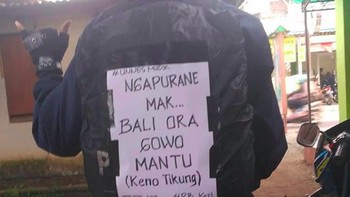 NGAPURANE
MAK...
BALI ORA
GOWO
MANTU
(Keno Tikung)